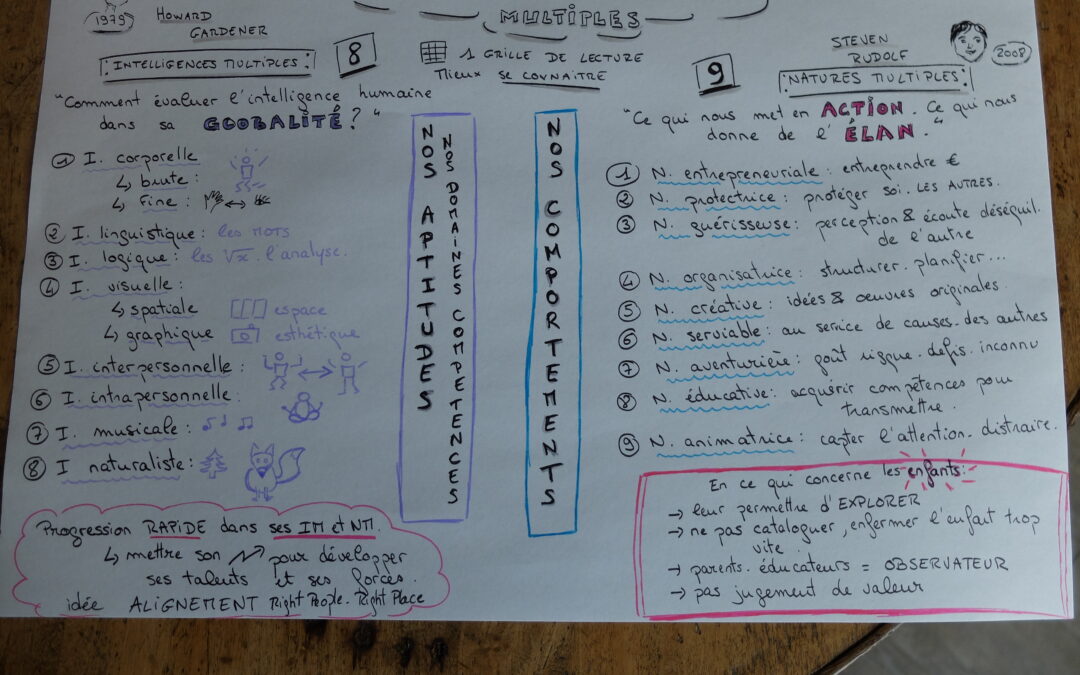 MULTIPLES
1979
HOWARD
GARDENER
INTELLIGENCES MULTIPLES
8
1 GRILLE DE LECTURE
Mieux SE CONNAITRE
9
STEVEN
RUDOLF
2008
NATURES MULTIPLES
"Comment évaluer l'intelligence humaine
dans sa GLOBALITÉ ? "
① I. corporelle
↳ brute :
↳ fine :
② I. linguistique : les MOTS
③ I. logique : les √x . l'analyse.
④ I. visuelle :
↳ spatiale espace
↳ graphique esthétique
⑤ I. interpersonnelle :
⑥ I. intrapersonnelle :
⑦ I. musicale :
⑧ I. naturaliste :
Progression RAPIDE dans ses IM et NM.
↳ mettre son pour développer
ses talents et ses forces.
idée ALIGNEMENT Right People. Right Place
NOS APTITUDES
NOS DOMAINES COMPETENCES
NOS COMPORTEMENTS
"Ce qui nous met en ACTION. Ce qui nous
donne de l' ÉLAN. "
① N. entrepreneuriale : entreprendre €
② N. protectrice : protéger soi. LES AUTRES.
③ N. guérisseuse : perception & écoute déséquil.
de l'autre
④ N. organisatrice : structurer. planifier...
⑤ N. créative : idées & oeuvres originales.
⑥ N. serviable : au service de causes. des autres
⑦ N. aventurière : goût risque. défis. inconnu
⑧ N. éducative : acquérir compétences pour
transmettre.
⑨ N. animatrice : capter l'attention. distraire.
En ce qui concerne les enfants :
→ leur permettre d'EXPLORER
→ ne pas cataloguer, enfermer l'enfant trop
vite
→ parents. éducateurs = OBSERVATEUR
→ pas jugement de valeur